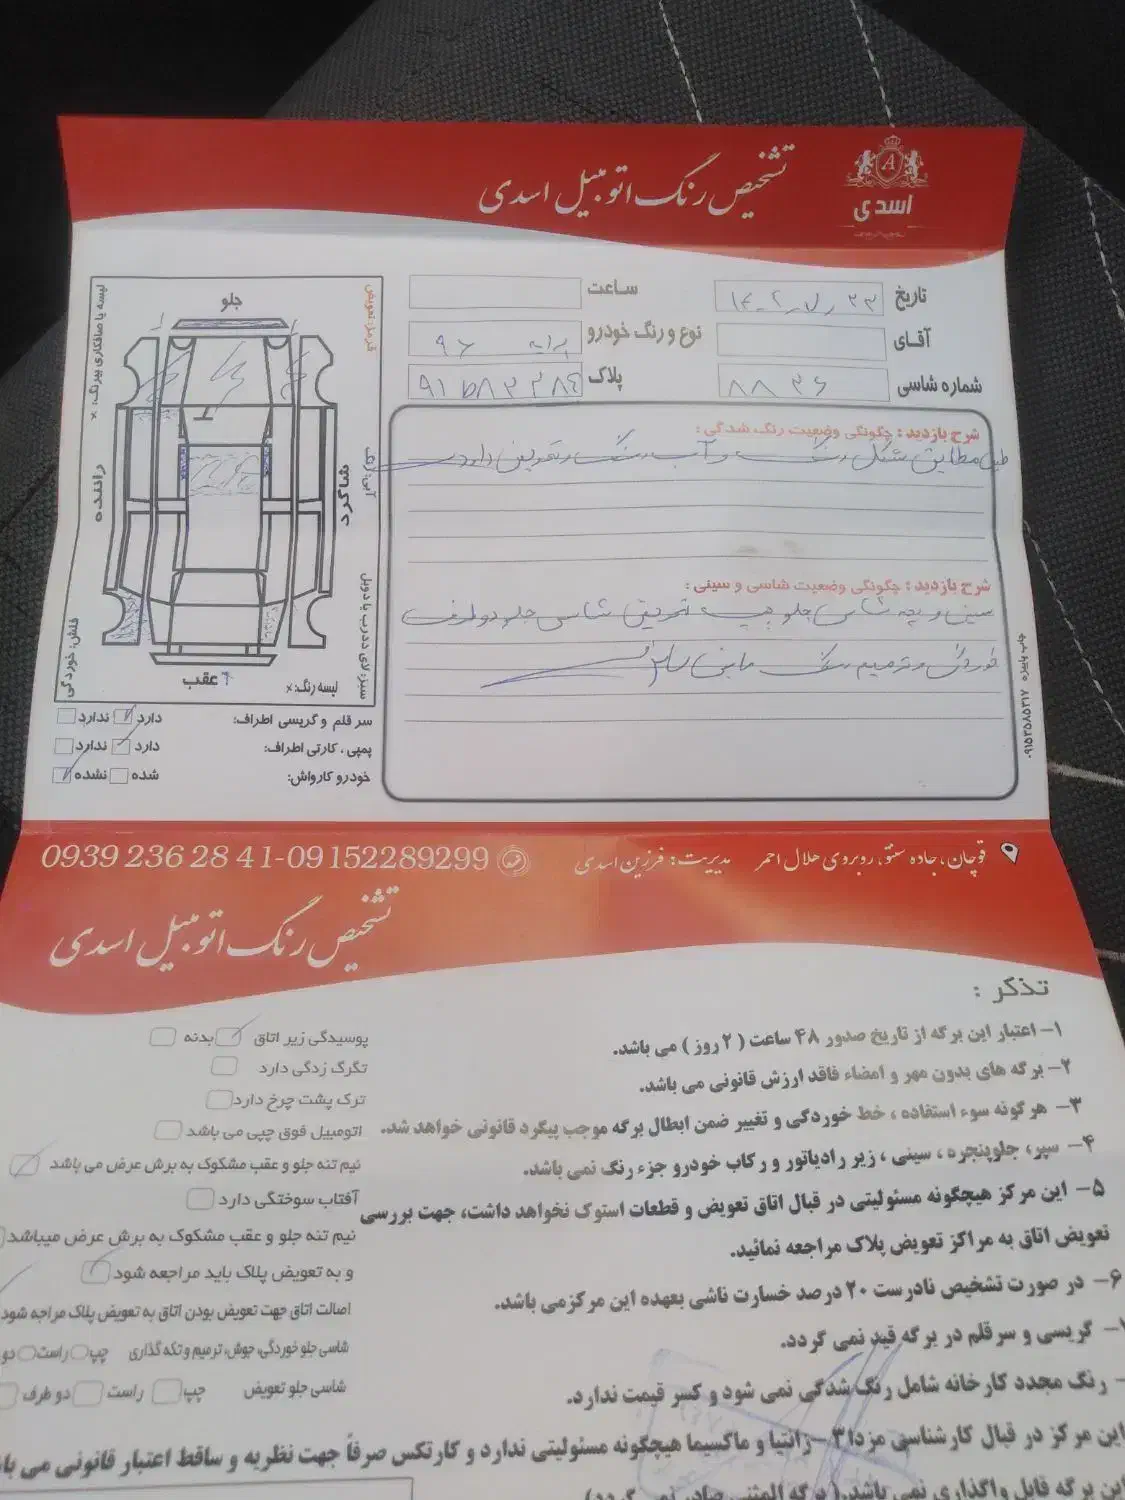 تشخیص رنگ اتومبیل اسدی
A
اسدی
تاریخ
ساعت
آقای
نوع و رنگ خودرو پراید ۹۶
شماره شاسی ۸۸۳۶
پلاک
شرح بازدید : چگونگی وضعیت رنگ شدگی :
مطابق شکل رنگ و آب رنگ و تعویض دارد
شرح بازدید : چگونگی وضعیت شاسی و سینی :
سینی و شاسی جلو تعویض شاسی جلو دو طرف
خوردگی و ترمیم رنگ
جلو
عقب
راننده
شاگرد
قرمز: تعویض
آبی: رنگ
سبز: لای ددرب با دویل
لیسه یا صافکاری بیرنگ: ×
فلش: خوردگی
لیسه رنگ: ×
سر قلم و گریسی اطراف: دارد ندارد
پمپی ، کارتی اطراف: دارد ندارد
خودرو کارواش: شده نشده
چاپ پاییزه ۰۹۱۵۳۵۸۵۳۱۷
قوچان، جاده سنتو، روبروی هلال احمر مدیریت: فرزین اسدی
0939 236 28 41-09152289299
تشخیص رنگ اتومبیل اسدی
تذکر :
۱- اعتبار این برگه از تاریخ صدور ۴۸ ساعت ( ۲ روز ) می باشد.
۲- برگه های بدون مهر و امضاء فاقد ارزش قانونی می باشد.
۳- هرگونه سوء استفاده ، خط خوردگی و تغییر ضمن ابطال برگه موجب پیگرد قانونی خواهد شد.
۴- سپر، جلوپنجره ، سینی ، زیر رادیاتور و رکاب خودرو جزء رنگ نمی باشد.
۵- این مرکز هیچگونه مسئولیتی در قبال اتاق تعویض و قطعات استوک نخواهد داشت، جهت بررسی
تعویض اتاق به مراکز تعویض پلاک مراجعه نمائید.
۶- در صورت تشخیص نادرست ۲۰ درصد خسارت ناشی بعهده این مرکزمی باشد.
- گریسی و سرقلم در برگه قید نمی گردد.
- رنگ مجدد کارخانه شامل رنگ شدگی نمی شود و کسر قیمت ندارد.
این مرکز در قبال کارشناسی مزدا۳ -زانتیا و ماکسیما هیچگونه مسئولیتی ندارد و کارتکس صرفاً جهت نظریه و ساقط اعتبار قانونی می
این برگه قابل واگذاری نمی باشد.( برگه المثنی صادر نمی گردد)
پوسیدگی زیر اتاق بدنه
تگرگ زدگی دارد
ترک پشت چرخ دارد
اتومبیل فوق چپی می باشد
نیم تنه جلو و عقب مشکوک به برش عرض می باشد
آفتاب سوختگی دارد
نیم تنه جلو و عقب مشکوک به برش عرض میباشد
و به تعویض پلاک باید مراجعه شود
اصالت اتاق جهت تعویض بودن اتاق به تعویض پلاک مراجه شود
شاسی جلو خوردگی، جوش، ترمیم و تکه گذاری چپ راست دو
شاسی جلو تعویض چپ راست دو طرف